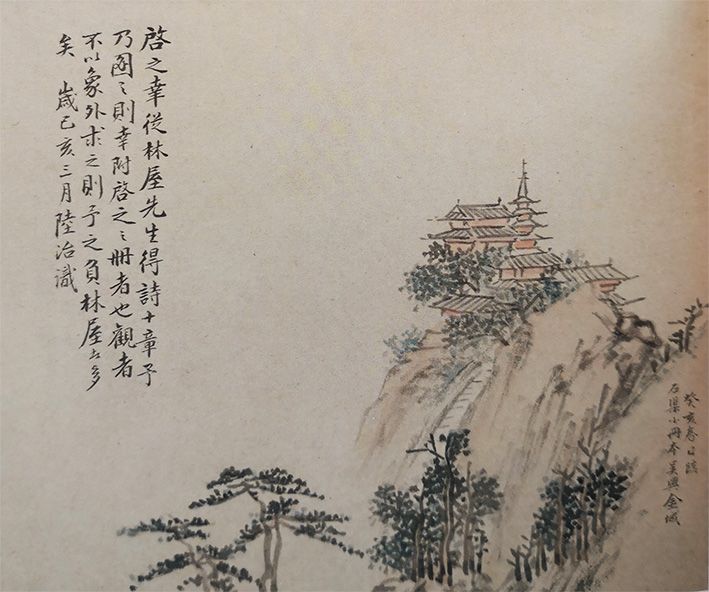 啓之幸從林屋先生得詩十章予
乃圖〻則幸附啓之〻冊者也觀者
不以象外求之則予之負林屋去多
矣 歲己亥三月陸治識
癸亥春日臨
石渠小冊本吳興金城